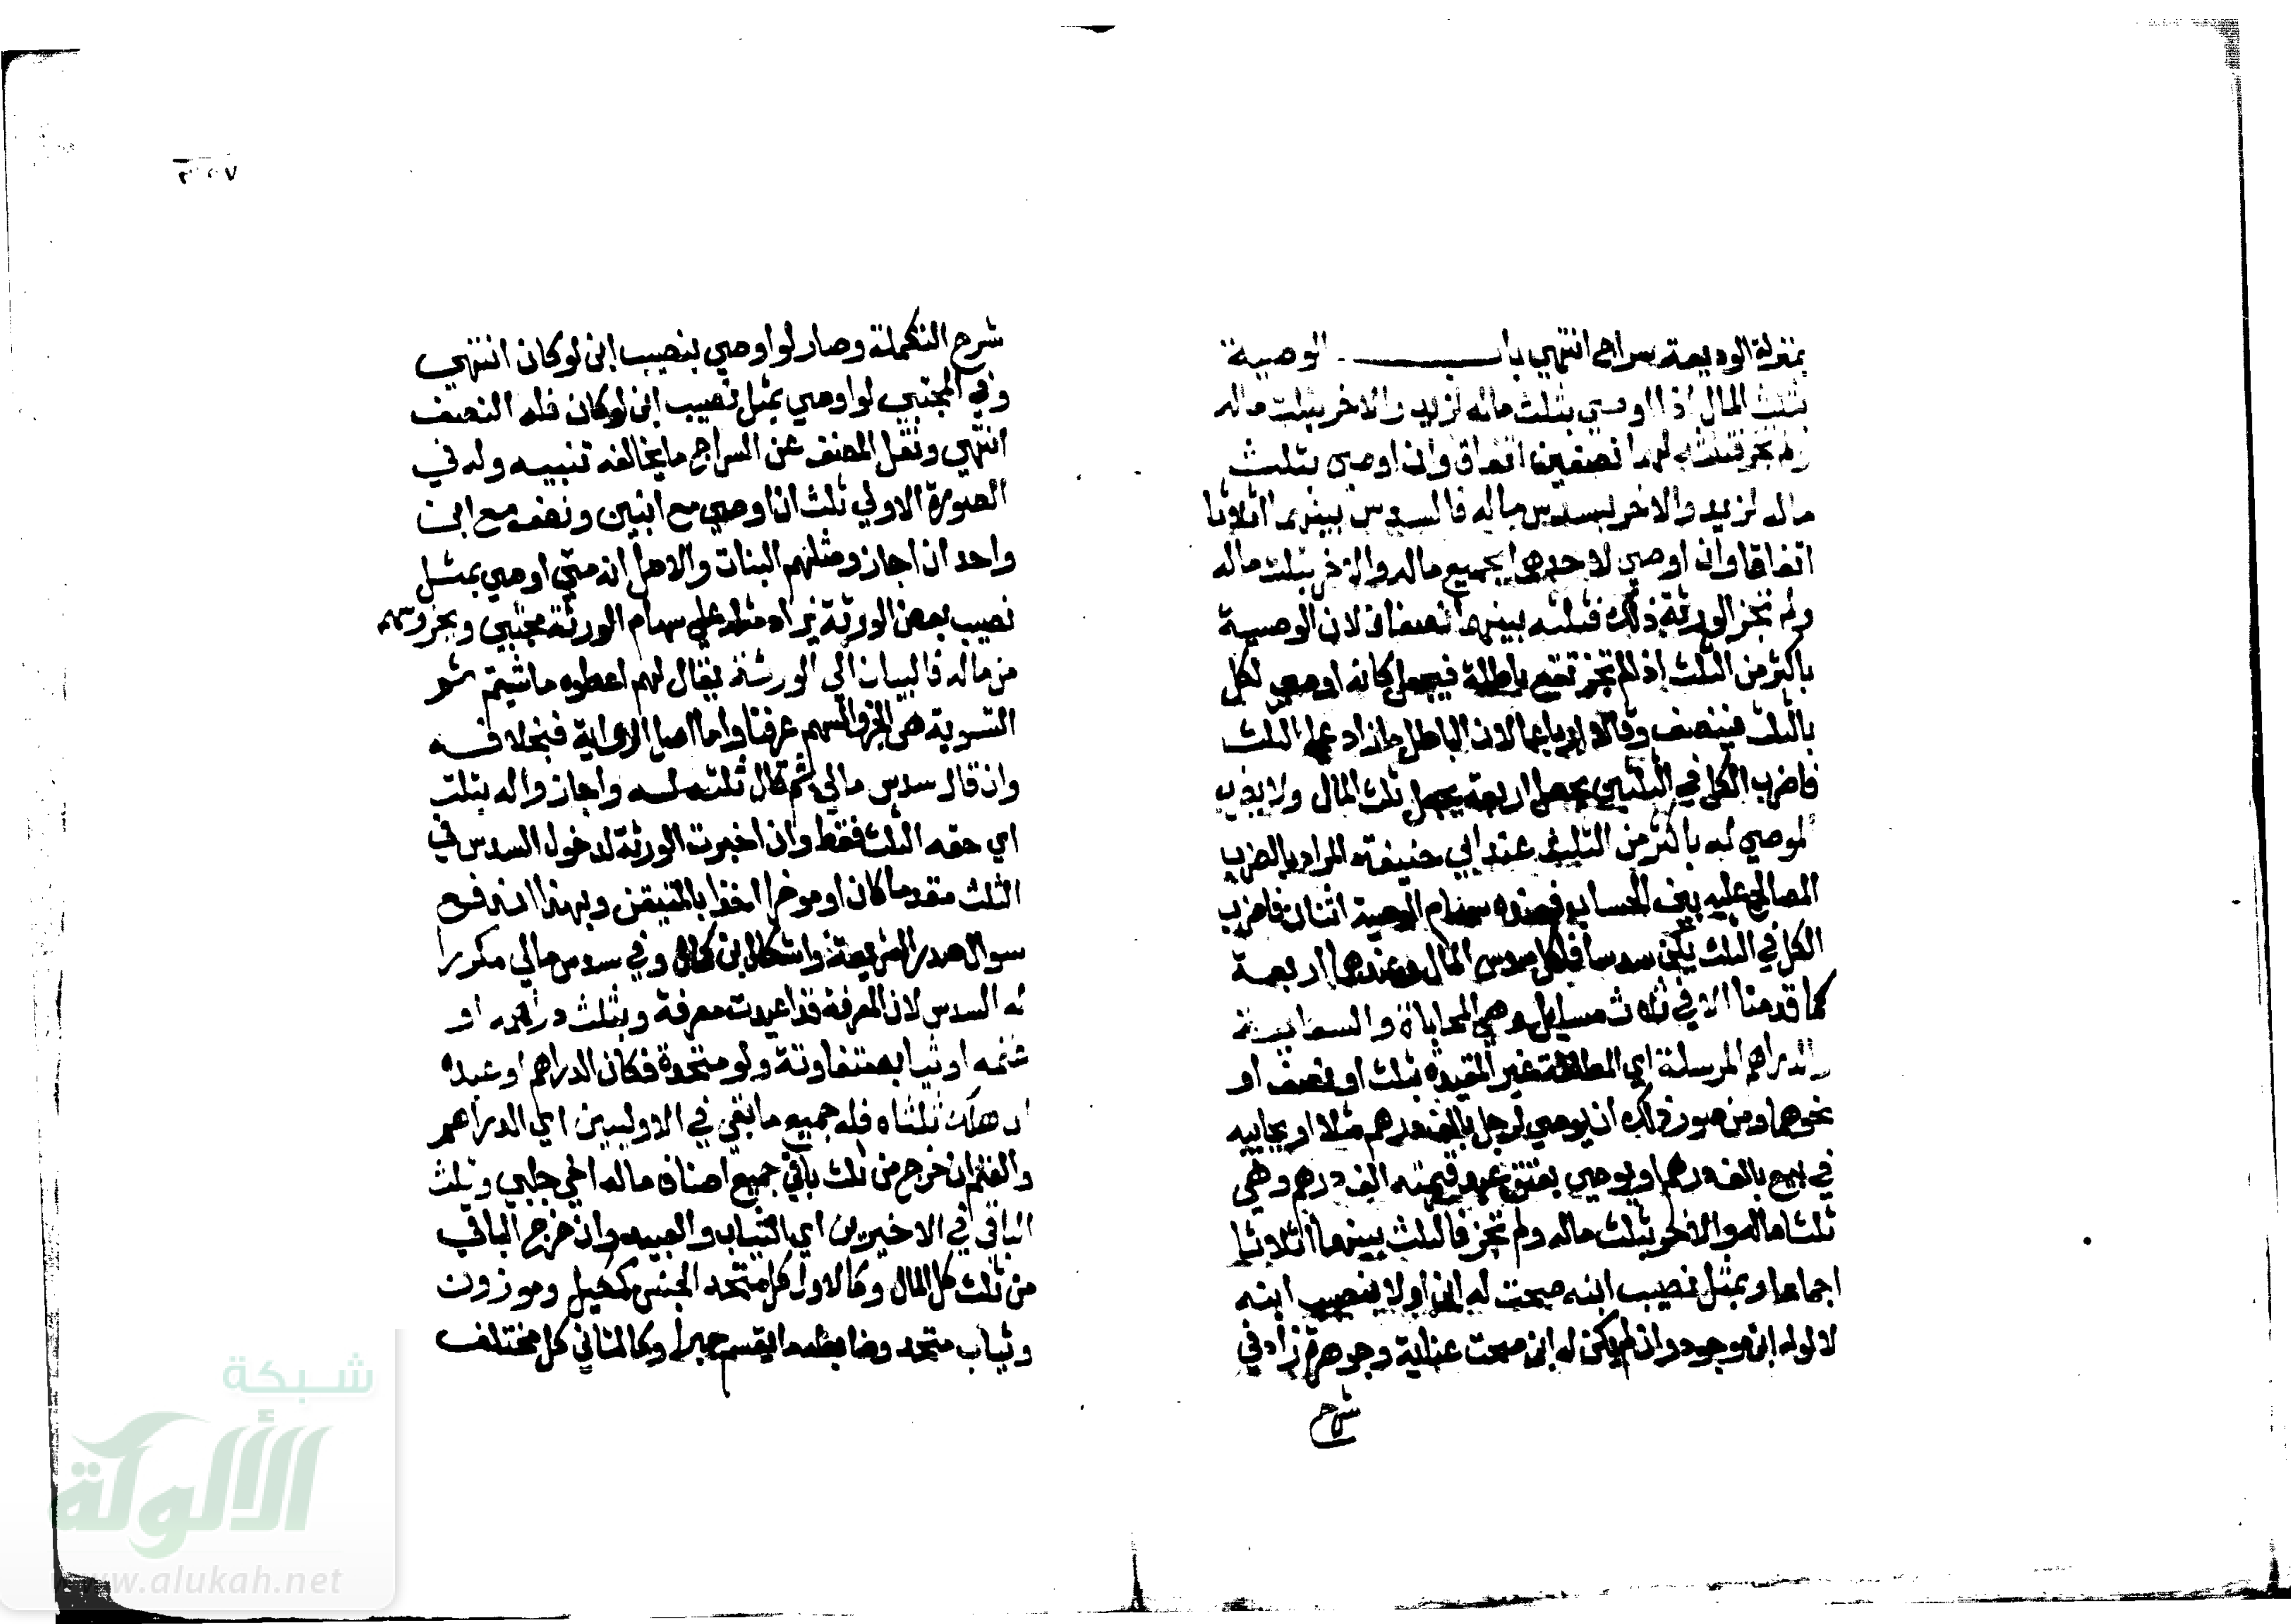 بمنزلة الوديعة سراج انتهي باب الوصية
بثلث المال اذا اوصى بثلث ماله لزيد والاخر بثلث ماله
ولم تجز فثلثه لهما نصفين اتفاقا وان اوصى بثلث
ماله لزيد والاخر بسدس ماله فالسدس بينهما اثلاثا
اتفاقا وان اوصي لاحدهما بجميع ماله والاخر بثلث ماله
ولم تجز الورثة ذلك فثلثه بينهما نصفان لان الوصية
باكثر من الثلث اذا لم تجز تقع باطلة فيجعل كانه اوصي لكل
بالثلث فينصف وقالا ارباعا لان الباطل مازاد على الثلث
فاضرب الكل في الثلثين يحصل اربعة يجعل ثلث المال ولا يضرب
الموصي له باكثر من الثلث عند ابي حنيفة المراد بالضرب
المصالح عليه بين الحساب فعنده سهام الوصية اثنان فاضرب
الكل في الثلث يكن سدسا فلكل سدس المال وعندهما اربعة
كما قدمنا الا في ثلاث مسايل وهي المحاباة والسعاية
والدراهم المرسلة اي المطلقة غير المقيدة بثلث او نصف او
نحوهما ومن صور ذلك ان يوصي لرجل بالف درهم مثلا او يحابيه
في بيع بالف درهم او يوصي بعتق عبد قيمته الف درهم وهي
ثلثا ماله والاخر بثلث ماله ولم تجز فالثلث بينهما اثلاثا
اجماعا وبمثل نصيب ابنه صحت له ابن اولا بنصيب ابنه
لا لو له ابن موجود وان لم يكن له ابن صحت عناية وجوهرة زاد في
شرح
شرح التكملة وصار لو اوصي بنصيب ابن لو كان انتهي
وفي المجتبي لو اوصي بمثل نصيب ابن لو كان فله النصف
انتهي ونقل المصنف عن السراج ما يخالفه تنبيه وله في
الصورة الاولي ثلث ان اوصي مع ابنين ونصف مع ابن
واحد ان اجاز ومثلهم البنات والاصل انه متي اوصي بمثل
نصيب بعض الورثة يزاد مثله علي سهام الورثة مجتبي وبجزء وسهم
من ماله فالبيان الي الورثة يقال لهم اعطوه ما شيتم ثم
التسوية هي الجزء والسهم عرفنا واما اصل الرواية فبخلافه
وان قال سدس مالي ثم قال ثلثه له واجازوا له بثلث
اي حقه الثلث فقط وان اخبرت الورثة لدخول السدس في
الثلث مقدما كان او موخرا اخذا بالمتيقن وبهذا اندفع
سوال صدر الشريعة واشكال ابن كمال وفي سدس مالي مكررا
له السدس لان المعرفة قد اعيدت معرفة وبثلث دراهمه او
غنمه او ثيابه متفاوتة ولو متحدة فكان الدراهم او عبده
ان هلك ثلثاه فله جميع ما بقي في الاوليين اي الدراهم
والغنم ان خرج من ثلث باقي جميع اصناف ماله اخي جلبي وثلث
الباقي في الاخيرين اي الثياب والعبيد وان خرج الباقي
من ثلث كل المال وكالاول كل متحد الجنس كمكيل وموزون
وثياب متحد وضابطه ما يقسم جبرا وكالثاني كل مختلف
شبكة
الألوكة
www.alukah.net